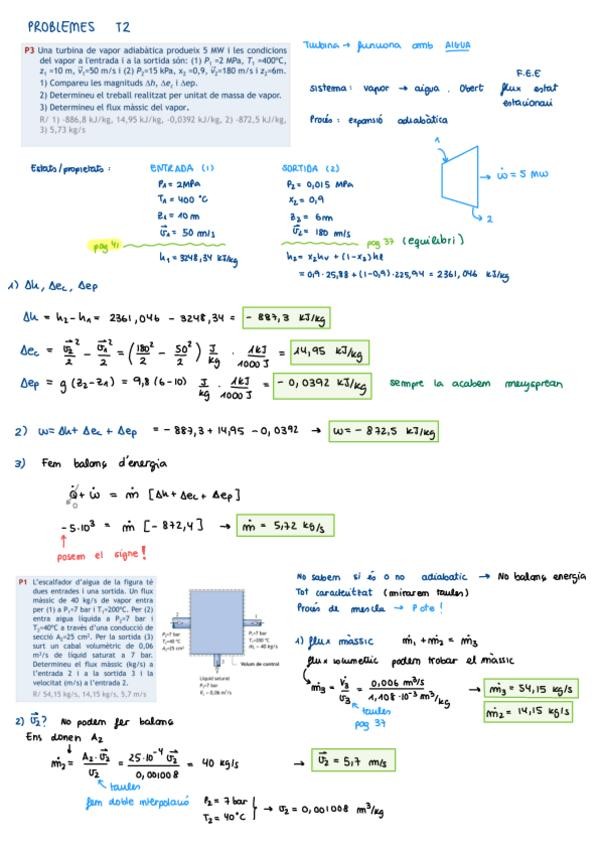 PROBLEMES T2
P3 Una turbina de vapor adiabàtica produeix 5 MW i les condicions
del vapor a l'entrada i a la sortida són: (1) P₁ =2 MPa, T₁ =400°C,
z₁ =10 m, v⃗₁=50 m/s i (2) P₂=15 kPa, x₂ =0,9, v⃗₂=180 m/s i z₂=6m.
1) Compareu les magnituds Δh, Δec i Δep.
2) Determineu el treball realitzat per unitat de massa de vapor.
3) Determineu el flux màssic del vapor.
R/ 1) -886,8 kJ/kg, 14,95 kJ/kg, -0,0392 kJ/kg, 2) -872,5 kJ/kg,
3) 5,73 kg/s
Turbina → funciona amb AIGUA
F.E.E
Sistema: vapor → aigua. Obert flux estat
estacionari
Procés: expansió adiabàtica
1
ẇ = 5 MW
2
Estats/propietats:
ENTRADA (1)
P₁ = 2MPa
T₁ = 400 °C
z₁ = 10 m
v⃗₁ = 50 m/s
pag 41
h₁ = 3248,34 kJ/kg
SORTIDA (2)
P₂ = 0,015 MPa
x₂ = 0,9
z₂ = 6m
v⃗₂ = 180 m/s
pag 37 (equilibri)
h₂ = x₂hv + (1-x₂)hl
= 0,9 · 25,88 + (1-0,9) · 225,94 = 2361,046 kJ/kg
1) Δh, Δec, Δep
Δh = h₂ - h₁ = 2361,046 - 3248,34 = - 887,3 kJ/kg
Δec = v⃗₂²/2 - v⃗₁²/2 = (180²/2 - 50²/2) J/kg · 1kJ/1000 J = 14,95 kJ/kg
Δep = g (z₂-z₁) = 9,8 (6-10) J/kg · 1kJ/1000 J = - 0,0392 kJ/kg sempre la acabem menysprean
2) w = Δh + Δec + Δep = - 887,3 + 14,95 - 0,0392 → w = - 872,5 kJ/kg
3) Fem balanç d'energia
Q̇ + ẇ = ṁ [Δh + Δec + Δep]
0
-5·10³ = ṁ [-872,4] → ṁ = 5,72 kg/s
posem el signe!
P1 L'escalfador d'aigua de la figura té
dues entrades i una sortida. Un flux
màssic de 40 kg/s de vapor entra
per (1) a P₁=7 bar i T₁=200°C. Per (2)
entra aigua líquida a P₂=7 bar i
T₂=40°C a través d'una conducció de
secció A₂=25 cm². Per la sortida (3)
surt un cabal volumètric de 0,06
m³/s de líquid saturat a 7 bar.
Determineu el flux màssic (kg/s) a
l'entrada 2 i a la sortida 3 i la
velocitat (m/s) a l'entrada 2.
R/ 54,15 kg/s, 14,15 kg/s, 5,7 m/s
Volum de control
Líquid saturat
No sabem si és o no adiabatic → No balanç energia
Tot caracteritzat (mirarem taules)
Procés de mescla → Pote!
1) flux màssic ṁ₁ + ṁ₂ = ṁ₃
flux volumètric podem trobar el màssic
ṁ₃ = V̇₃/v₃ = 0,006 m³/s / 1,108·10⁻³ m³/kg → ṁ₃ = 54,15 kg/s
ṁ₂ = 14,15 kg/s
taules
pag 37
2) v⃗₂? No podem fer balanç
Ens donen A₂
ṁ₂ = A₂·v⃗₂/v₂ = 25·10⁻⁴ v⃗₂/0,001008 = 40 kg/s → v⃗₂ = 5,7 m/s
taules
fem doble interpolació P₂ = 7 bar
T₂ = 40°C } → v₂ = 0,001008 m³/kg